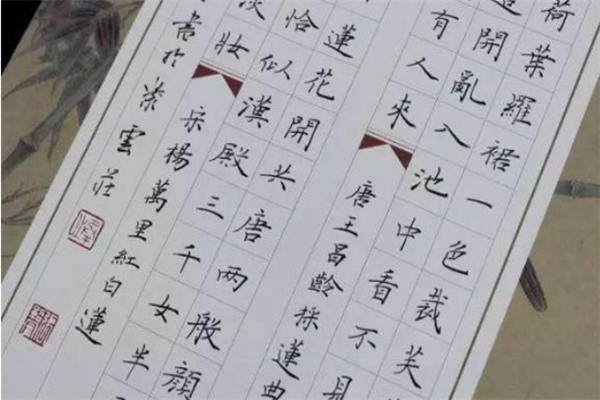 荷葉羅裙一色裁芙
開亂入池中看不見
有人來 唐王昌齡採蓮曲
蓮花開共唐两般顏
恰似漢殿三千女半
淡妝 宋楊萬里紅白蓮
書於雲莊